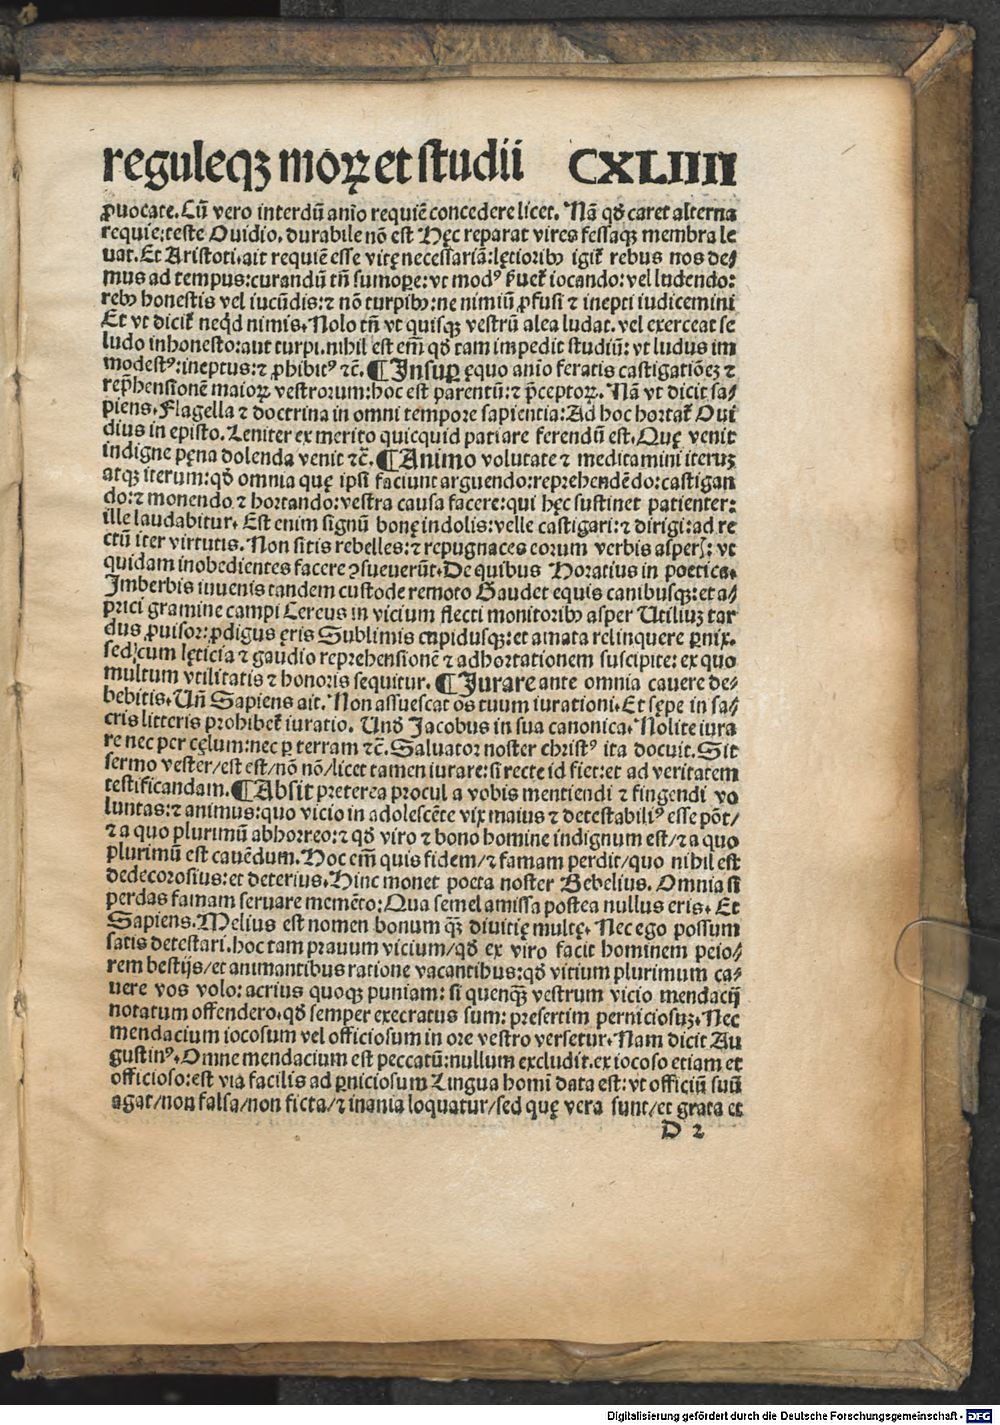 reguleqꝫ moꝝ et studii CXLIIII
ꝓuocate. Cū vero interdū anīo requiē concedere licet. Nā qđ caret alterna
requie: teste Ouidio, durabile nō est Hęc reparat vires fessaqꝫ membra le
uat. Et Aristoti. ait requiē esse vitę necessariā: lętiorib⁹ igit̄ rebus nos de⸗
mus ad tempus: curandū tn̄ sumoꝑe: vt mod⁹ p̄uet̄ iocando: vel ludendo:
reb⁹ honestis vel iucūdis: ⁊ nō turpib⁹: ne nimiū ꝓfusi ⁊ inepti iudicemini
Et vt dicit̄ neq̇d nimis. Nolo tn̄ vt quisqꝫ vestrū alea ludat. vel exerceat se
ludo inhonesto: aut turpi. nihil est em̄ qđ tam impedit studiū: vt ludus im
modest⁹: ineptus: ⁊ ꝓhibit⁹ ⁊c̄. ¶ Insuꝑ ęquo anīo feratis castigatiōeꝫ ⁊
rep̄hensionē maioꝝ vestrorum: hoc est parentū: ⁊ p̄ceptoꝝ. Nā vt dicit sa⸗
piens. Flagella ⁊ doctrina in omni tempore sapientia: Ad hoc hortat̄ Oui
dius in episto. Leniter ex merito quicquid patiare ferendū est. Quę venit
indigne pęna dolenda venit ⁊c̄. ¶ Animo volutate ⁊ meditamini iteruꝫ
atqꝫ iterum: qđ omnia quę ipsi faciunt arguendo: reprehendēdo: castigan
do: ⁊ monendo ⁊ hortando: vestra causa facere: qui hęc sustinet patienter:
ille laudabitur. Est enim signū bonę indolis: velle castigari: ⁊ dirigi: ad re
ctū iter virtutis. Non sitis rebelles: ⁊ repugnaces eorum verbis asperꝭ: vt
quidam inobedientes facere ꝯsueuerūt. De quibus Horatius in poetica.
Imberbis iuuenis tandem custode remoto Gaudet equis canibusqꝫ: et a⸗
prici gramine campi Cereus in vicium flecti monitorib⁹ asper Utiliuꝫ tar
dus ꝓuisor: ꝓdigus ęris Sublimis cupidusqꝫ: et amata relinquere ꝑnix.
sed cum lęticia ⁊ gaudio reprehensionē ⁊ adhortationem suscipite: ex quo
multum vtilitatis ⁊ honoris sequitur. ¶ Jurare ante omnia cauere de⸗
bebitis. Un̄ Sapiens ait. Non assuescat os tuum iurationi. Et sępe in sa⸗
cris litteris prohibet̄ iuratio. Unđ Jacobus in sua canonica. Nolite iura
re nec per cęlum: nec ꝑ terram ⁊c̄. Saluator noster christ⁹ ita docuit. Sit
sermo vester/ est est/ nō nō/ licet tamen iurare: si recte id fiet: et ad veritatem
testificandam. ¶ Absit preterea procul a vobis mentiendi ⁊ fingendi vo
luntas: ⁊ animus: quo vicio in adolescēte vix maius ⁊ detestabili⁹ esse pōt/
⁊ a quo plurimū abhorreo: ⁊ qđ viro ⁊ bono homine indignum est/ ⁊ a quo
plurimū est cauēdum. Hoc em̄ quis fidem/ ⁊ famam perdit/ quo nihil est
dedecorosius: et deterius. Hinc monet poeta noster Bebelius. Omnia si
perdas famam seruare memēto: Qua semel amissa postea nullus eris. Et
Sapiens. Melius est nomen bonum qꝫ̄ diuitię multę. Nec ego possum
satis detestari. hoc tam prauum vicium/ qđ ex viro facit hominem peio⸗
rem bestijs/ et animantibus ratione vacantibus: qđ vitium plurimum ca⸗
uere vos volo: acrius quoqꝫ puniam: si quenqꝫ̄ vestrum vicio mendacij
notatum offendero. qđ semper execratus sum: presertim perniciosuꝫ. Nec
mendacium iocosum vel officiosum in ore vestro versetur. Nam dicit Au
gustin⁹. Omne mendacium est peccatū: nullum excludit. ex iocoso etiam et
officioso: est via facilis ad ꝑniciosum Lingua homī data est: vt officiū suū
agat/ non falsa/ non ficta/ ⁊ inania loquatur/ sed quę vera sunt/ et grata et
D 2
Digitalisierung gefördert durch die Deutsche Forschungsgemeinschaft - DFG